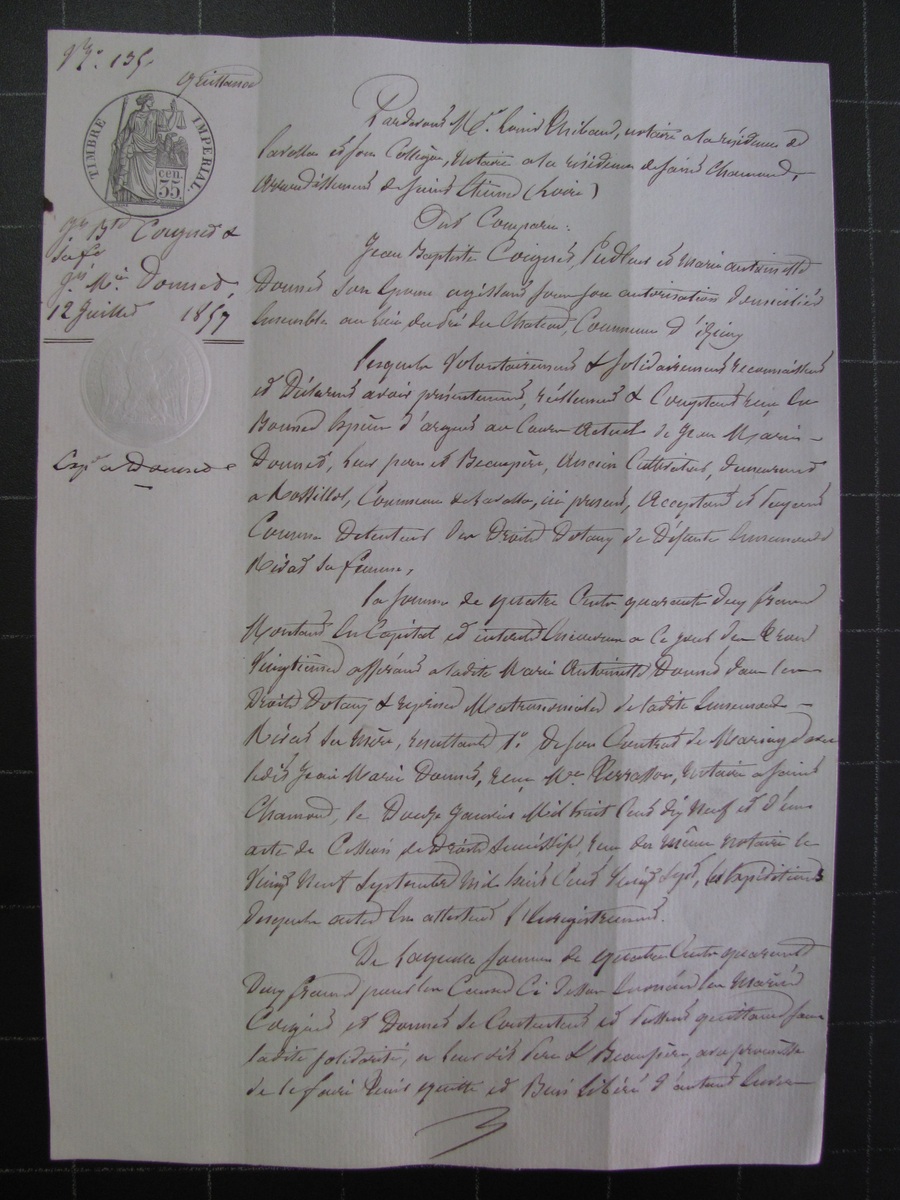 N.º 135
Quittance
TIMBRE IMPERIAL.
cen.
35
Jn Bte Coignet &
sa fe
Me Donnet
12 Juillet 1857
Expn a Donnet
Pardevant Me Louis Thibaud, notaire a la résidence de
Lavalla et son Collègue, Notaire a la résidence de saint Chamond,
Arrondissement de saint Etienne (Loire)
Ont Comparu:
Jean Baptiste Coignet, et Marie antoinette
Donnet son Epouse agissant sous son autorisation domiciliés
Ensemble au lieu du Cré du Chateau, Commune d'izieux
Lesquels Volontairement & solidairement reconnaissent
et Déclarent avoir présentement, réellement & Comptant reçu en
Bonnes Espèces d'argent au Cours Actuel de Jean Marie
Donnet, leur père et Beaupère, Ancien Cultivateur, demeurant
a Rossillol, Commune de Lavalla, ici présent, Acceptant et payant
Comme Détenteur des Droits Dotaux de Défunte
sa femme,
la somme de quatre Cents quarante deux francs
Montant En Capital et intérêts Encourus a ce jour des trois
Vingtièmes afférant a ladite Marie Antoinette Donnet dans les
Droits Dotaux & reprises Matrimoniales de ladite
sa Mère, resultants 1º. de son Contrat de Mariage avec
ledit Jean Marie Donnet, reçu Me Terrasson, Notaire a saint
Chamond, le Douze Janvier Mil huit Cent dix Neuf et d'un
acte de Cession de Droits Successifs, reçu du même Notaire le
Vingt Neuf septembre Mil huit Cent Vingt Sept, les Expéditions
desquels actes En attestent l'Enregistrement.
De Laquelle somme de quatre Cents quarante
Deux francs pour les Causes Ci Dessus Enoncées les Mariés
Coignet et Donnet se Contentent et Passent quittance sous
ladite solidarité, a leur dit Père & Beaupère, avec promesse
de le faire tenir quitte et Bien Libéré d'autant Envers